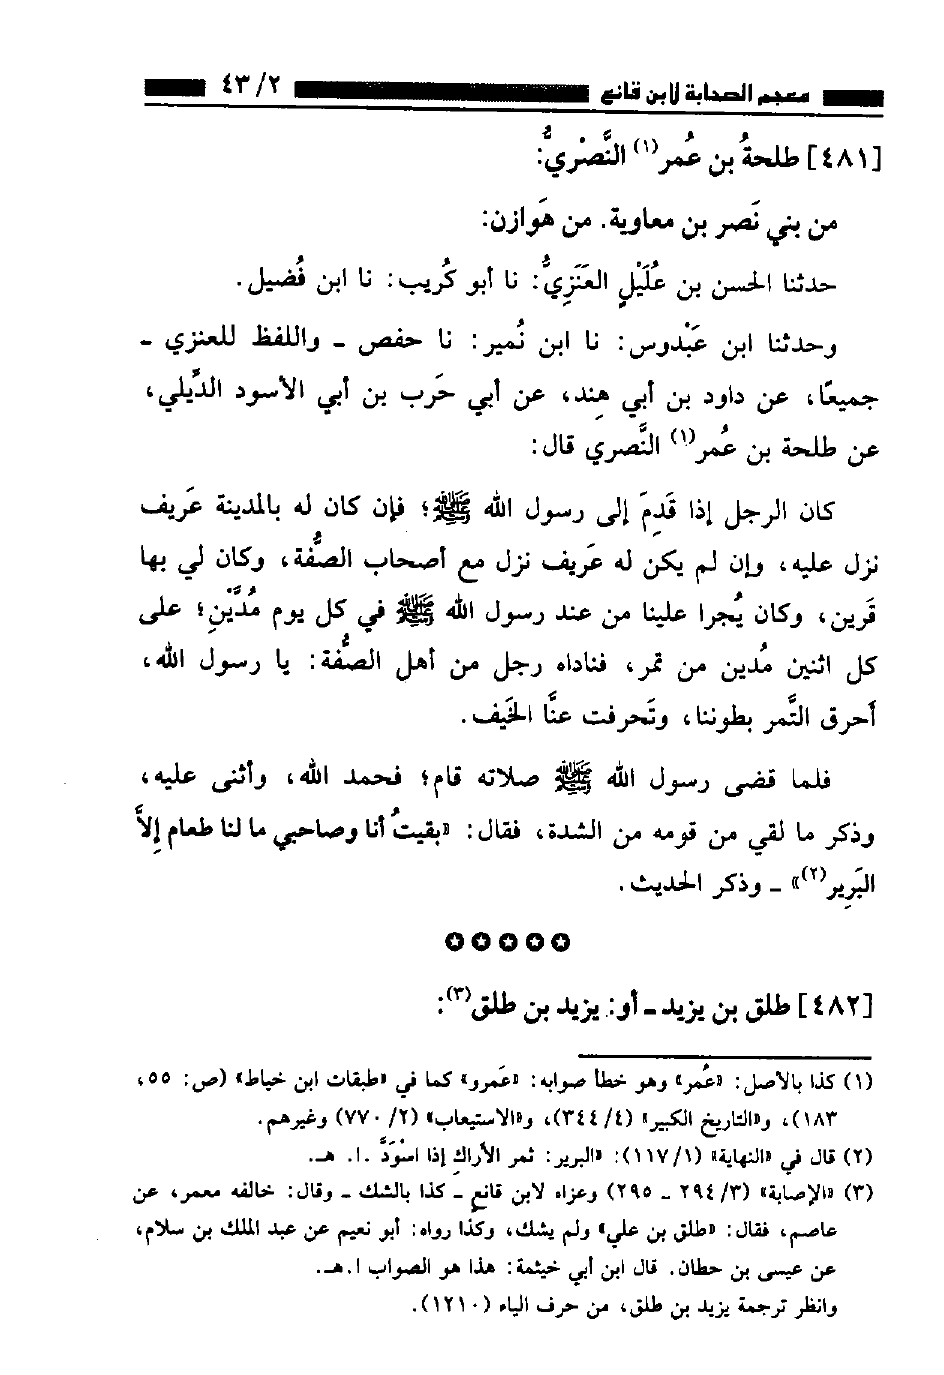 معجم الصحابة لابن قانع ٢/ ٤٣
[٤٨١] طلحةُ بن عُمر(١) النَّصْريُّ:
من بني نَصر بن معاوية. من هَوازن:
حدثنا الحسن بن عُلَيْلٍ العَنَزِيُّ: نا أبو كُريب: نا ابن فُضيل.
وحدثنا ابن عَبْدوس: نا ابن نُمير: نا حفص ـ واللفظ للعنزي ـ
جميعًا، عن داود بن أبي هِند، عن أبي حَرب بن أبي الأسود الدِّيلي،
عن طلحة بن عُمر(١) النَّصري قال:
كان الرجل إذا قَدِمَ إلى رسول الله ﷺ؛ فإن كان له بالمدينة عَريف
نزل عليه، وإن لم يكن له عَريف نزل مع أصحاب الصُّفة، وكان لي بها
قَرين، وكان يُجرا علينا من عند رسول الله ﷺ في كل يوم مُدَّيْنِ؛ على
كل اثنين مُدين من تمر، فناداه رجل من أهل الصُّفة: يا رسول الله،
أَحرق التَّمر بطوننا، وتَحرفت عنَّا الخَيف.
فلما قضى رسول الله ﷺ صلاته قام؛ فحمد الله، وأثنى عليه،
وذكر ما لقي من قومه من الشدة، فقال: «بقيتُ أنا وصاحبي ما لنا طعام إلاَّ
البَرِير(٢)» ـ وذكر الحديث.
✪✪✪✪✪
[٤٨٢] طلق بن يزيد ـ أو: يزيد بن طلق(٣):
(١) كذا بالأصل: «عُمر» وهو خطأ صوابه: «عَمرو» كما في «طبقات ابن خياط» (ص: ٥٥،
١٨٣)، و«التاريخ الكبير» (٤/ ٣٤٤)، و«الاستيعاب» (٢/ ٧٧٠) وغيرهم.
(٢) قال في «النهاية» (١/ ١١٧): «البرير: ثمر الأراكِ إذا اسْوَدَّ .ا. هـ.
(٣) «الإصابة» (٣/ ٢٩٤ ـ ٢٩٥) وعزاه لابن قانع ـ كذا بالشك ـ وقال: خالفه معمر، عن
عاصم، فقال: «طلق بن علي» ولم يشك، وكذا رواه: أبو نعيم عن عبد الملك بن سلام،
عن عيسى بن حطان. قال ابن أبي خيثمة: هذا هو الصواب ا.هـ.
وانظر ترجمة يزيد بن طلق، من حرف الياء (١٢١٠).